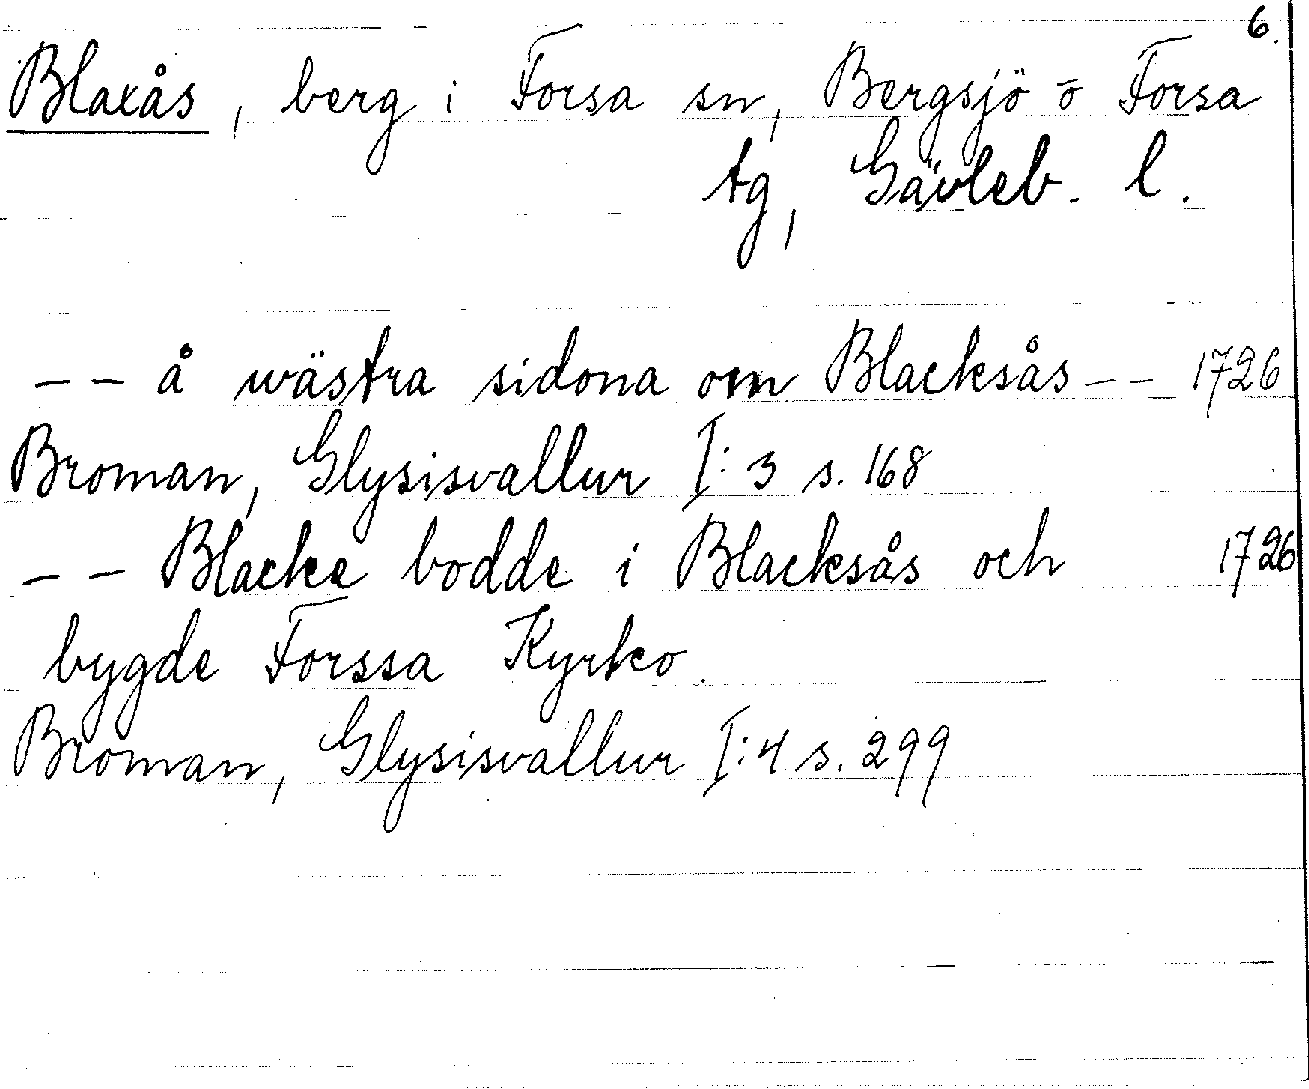 6.
Blaxås, berg i Forsa sn, Bergsjö o Forsa
tg, Gävleb. l.
-- å wästra sidona om Blacksås -- 1726
Broman, Glysisvallur I:3 s. 168
-- Blacke bodde i Blacksås och 1726
bygde Forssa Kyrko.
Broman, Glysisvallur I:4 s. 299